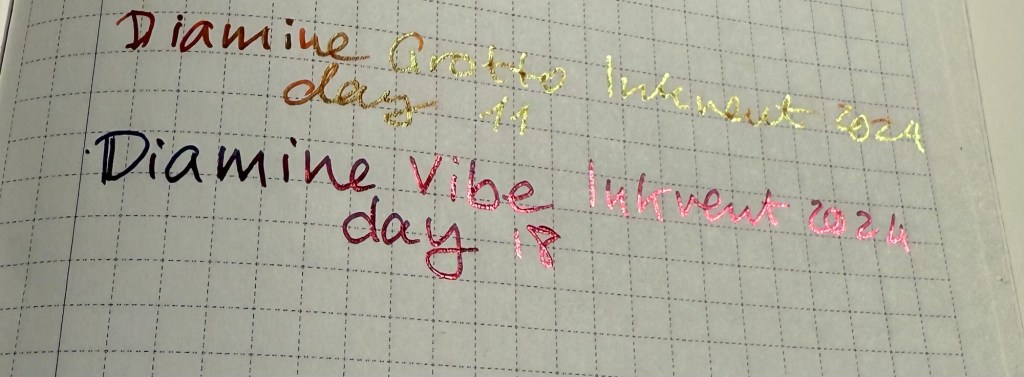 Diamine Grotto Inkvent 2024
day 11
Diamine Vibe Inkvent 2024
day 18